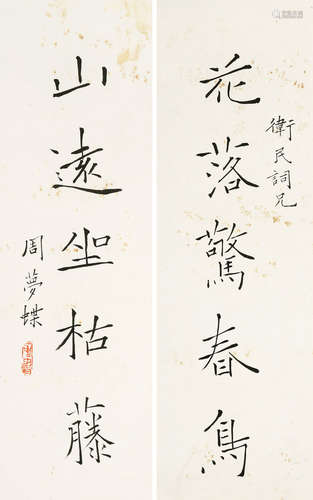 衛民詞兄
花落驚春鳥
山遠坐枯藤
周夢蝶